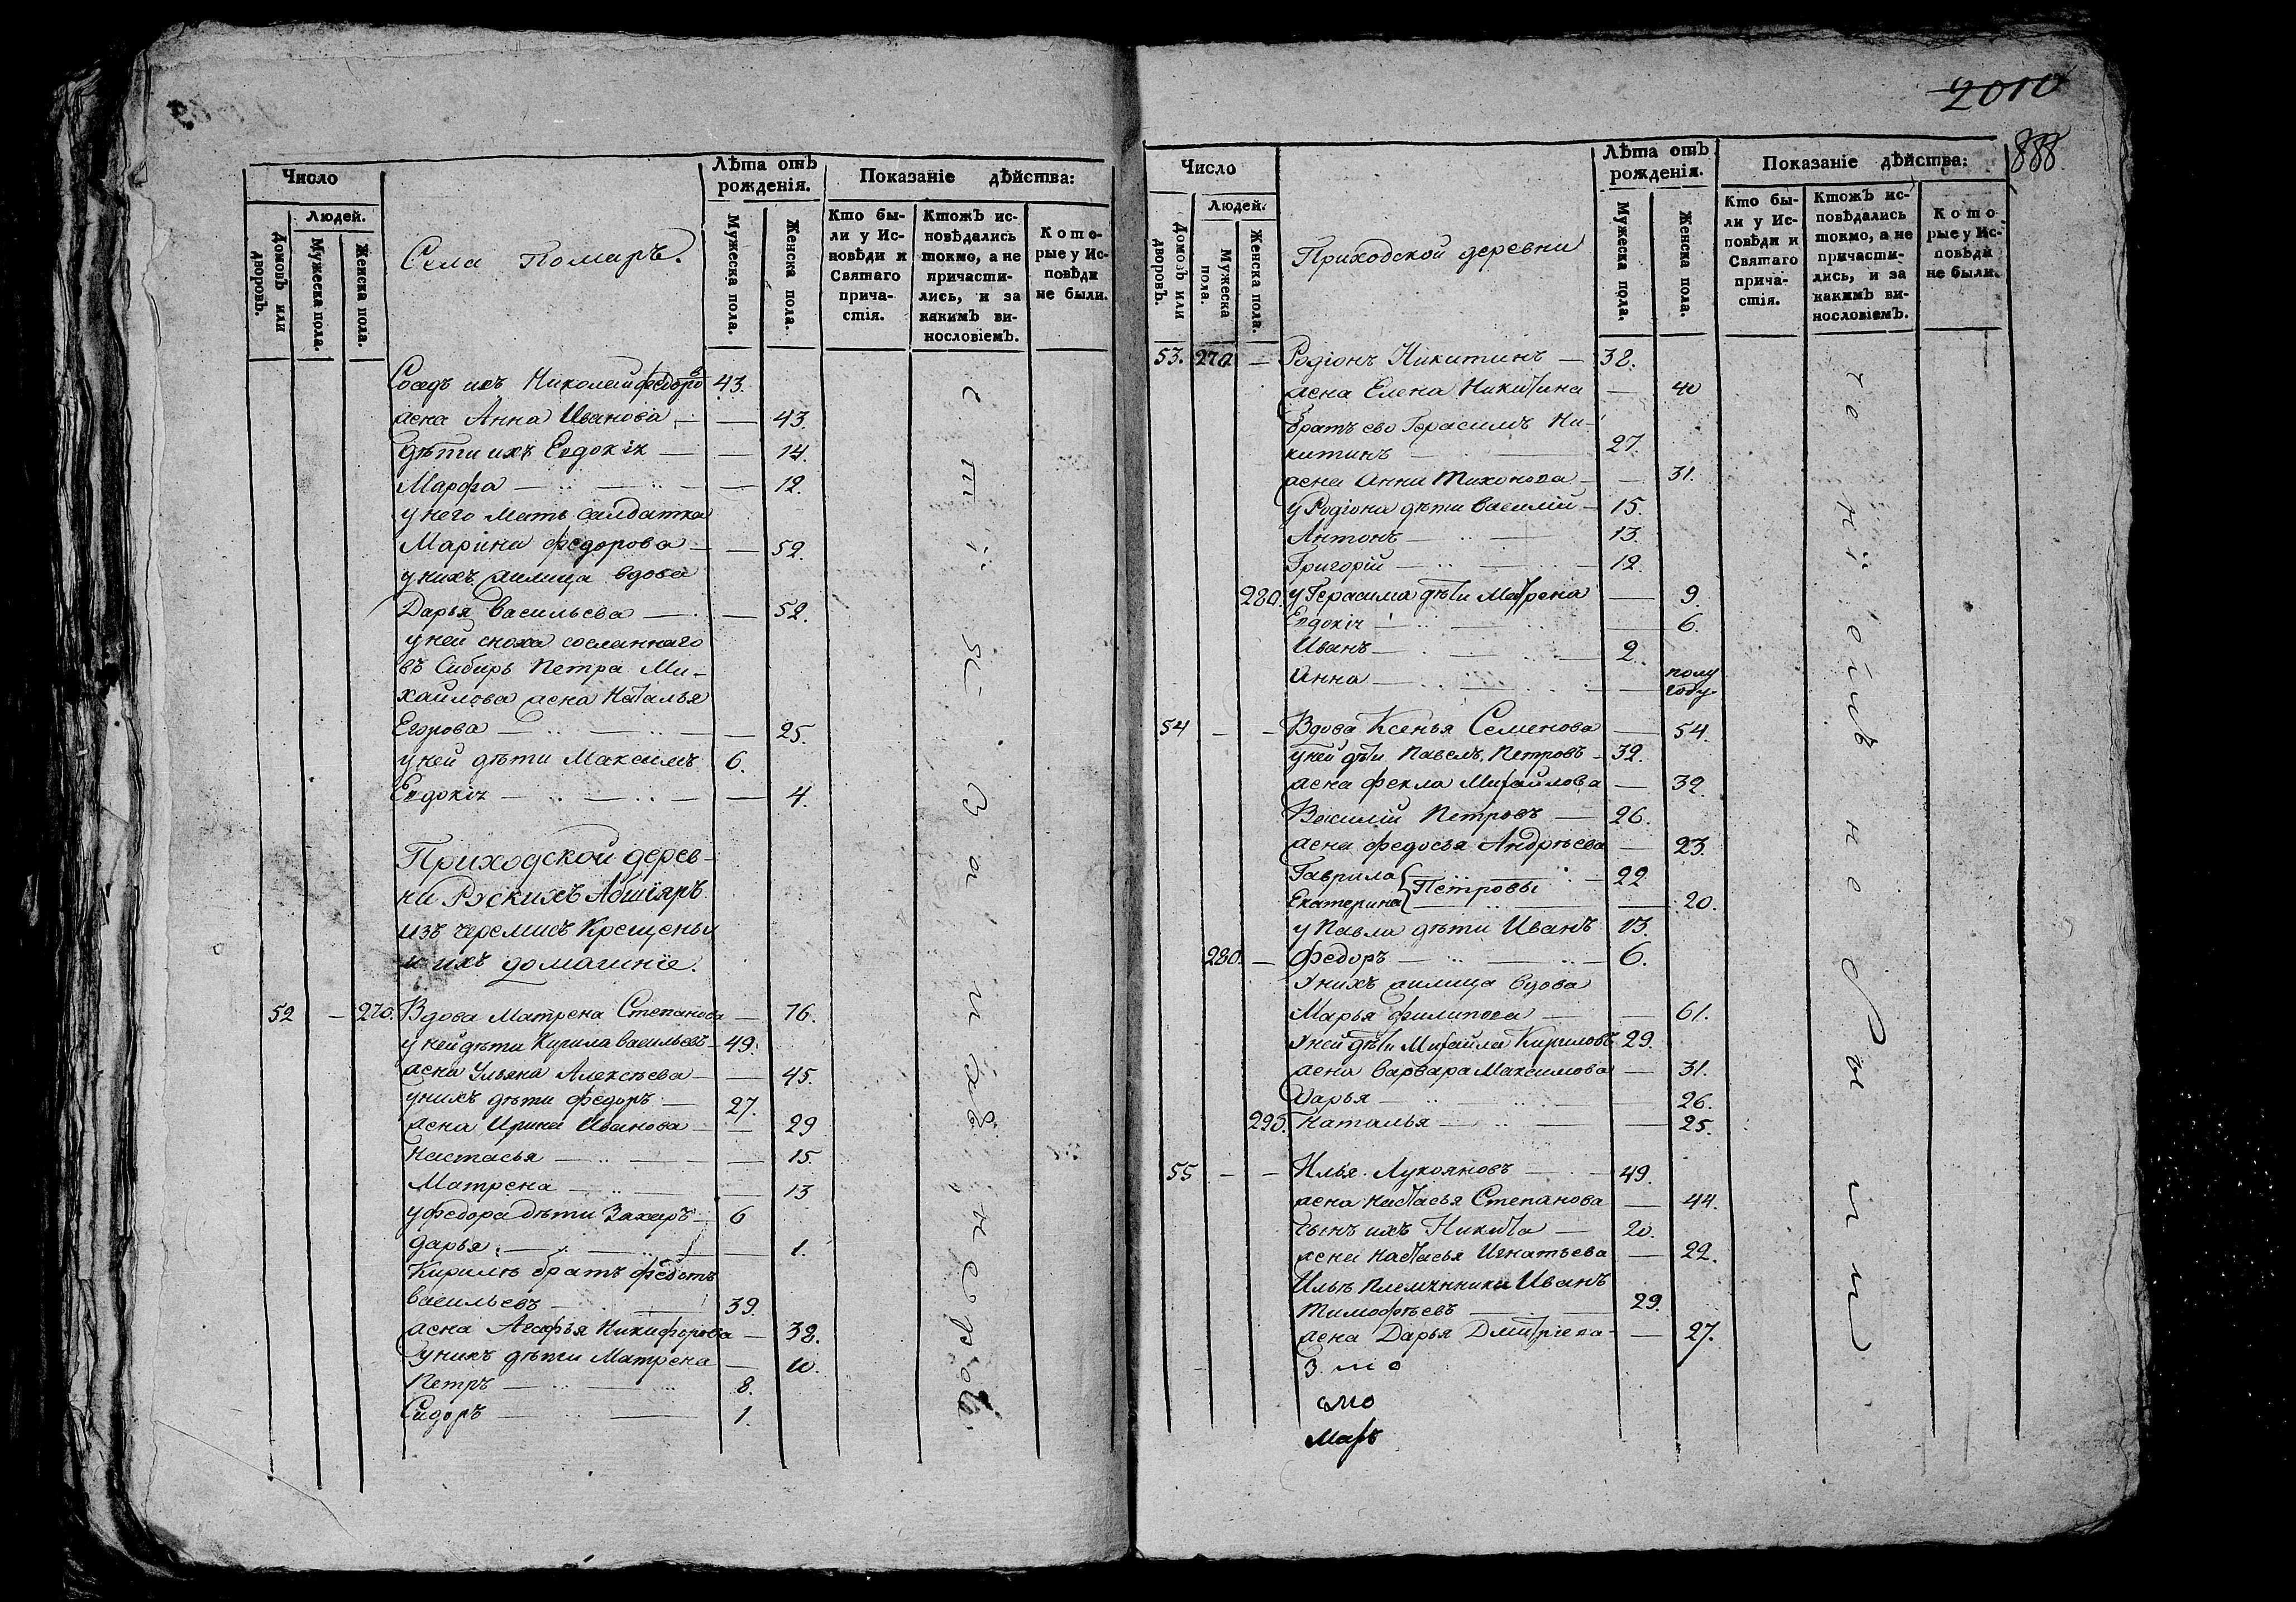 Число
Людей.
Домовъ или дворовъ.
Мужеска пола.
Женска пола.
Села Помаръ.
Лѣта отъ рожденія.
Мужеска пола.
Женска пола.
Показаніе дѣйства:
Кто были у Исповѣди и Святаго причастія.
Ктожъ исповѣдались токмо, а не причастились, и за какимъ винословіемъ.
Которые у Исповѣди не были.
Соседъ ихъ Николай Федоровъ 43.
жена Анна Иванова — — 43.
дѣти ихъ Евдокія — — 14.
Марфа — — 12.
у него мать салдатка
Марина Федорова — — 52.
у нихъ жилица вдова
Дарья Васильева — — 52.
у ней сноха сосланнаго
въ Сибирь Петра Ми-
хайлова жена Наталья
Егорова — — 25.
у ней дѣти Максимъ 6.
Евдокія — — 4.
Приходской дерев-
ни Рускихъ Абшіяръ
изъ черемисъ Крещены
и ихъ домашніе.
52 — 270. Вдова Матрена Степанова — 76.
у ней дѣти Кирила Васильевъ — 49.
жена Ульяна Алексѣева — — 45.
у нихъ дѣти Федоръ — 27.
жена Ирина Иванова — — 29
Настасья — — 15.
Матрена — — 13
у Федора дѣти Захаръ — 6
Дарья — — 1.
Кирилѣ братъ Федотъ
Васильевъ — 39.
жена Агафья Никифорова — 38.
у нихъ дѣти Матрена — 10.
Петръ — 8.
Сидоръ — 1.
2010
888
Число
Людей.
Домовъ или дворовъ.
Мужеска пола.
Женска пола.
Приходской деревни
Лѣта отъ рожденія.
Мужеска пола.
Женска пола.
Показаніе дѣйства:
Кто были у Исповѣди и Святаго причастія.
Ктожъ исповѣдались токмо, а не причастились, и за какимъ винословіемъ.
Которые у Исповѣди не были.
53. 270. — Родіонъ Никитинъ — 38.
жена Елена Никитина — 40
братъ ево Герасимъ Ни-
китинъ — 27.
жена Анна Тихонова — — 31.
у Родіона дѣти Василій — 15.
Антонъ — 13.
Григорій — 12.
280. у Герасима дѣти Матрена — 9.
Евдокія — — 6.
Иванъ — 2.
Анна — — полу
году.
54 — — Вдова Ксенья Семенова — 54.
у ней дѣти Павелъ Петровъ — 32.
жена Фекла Михайлова — 32.
Василій Петровъ — 26.
жена Федосья Андрѣева — 23.
Гаврила — 22
Петровы
Екатерина — 20.
у Павла дѣти Иванъ 13.
280. — Федоръ — 6.
у нихъ жилица вдова
Марья Филипова — — 61.
у ней дѣти Михайла Кириловъ 29.
жена Варвара Максимова — 31.
Дарья — — 26.
290. Наталья — — 25.
55 — — Илья Лукояновъ — 49.
жена Настасья Степанова — 44.
сынъ ихъ Никита — 20.
жена Настасья Игнатьева — 22.
Ильѣ племянники Иванъ
Тимофѣевъ — 29.
жена Дарья Дмитріева — — 27.